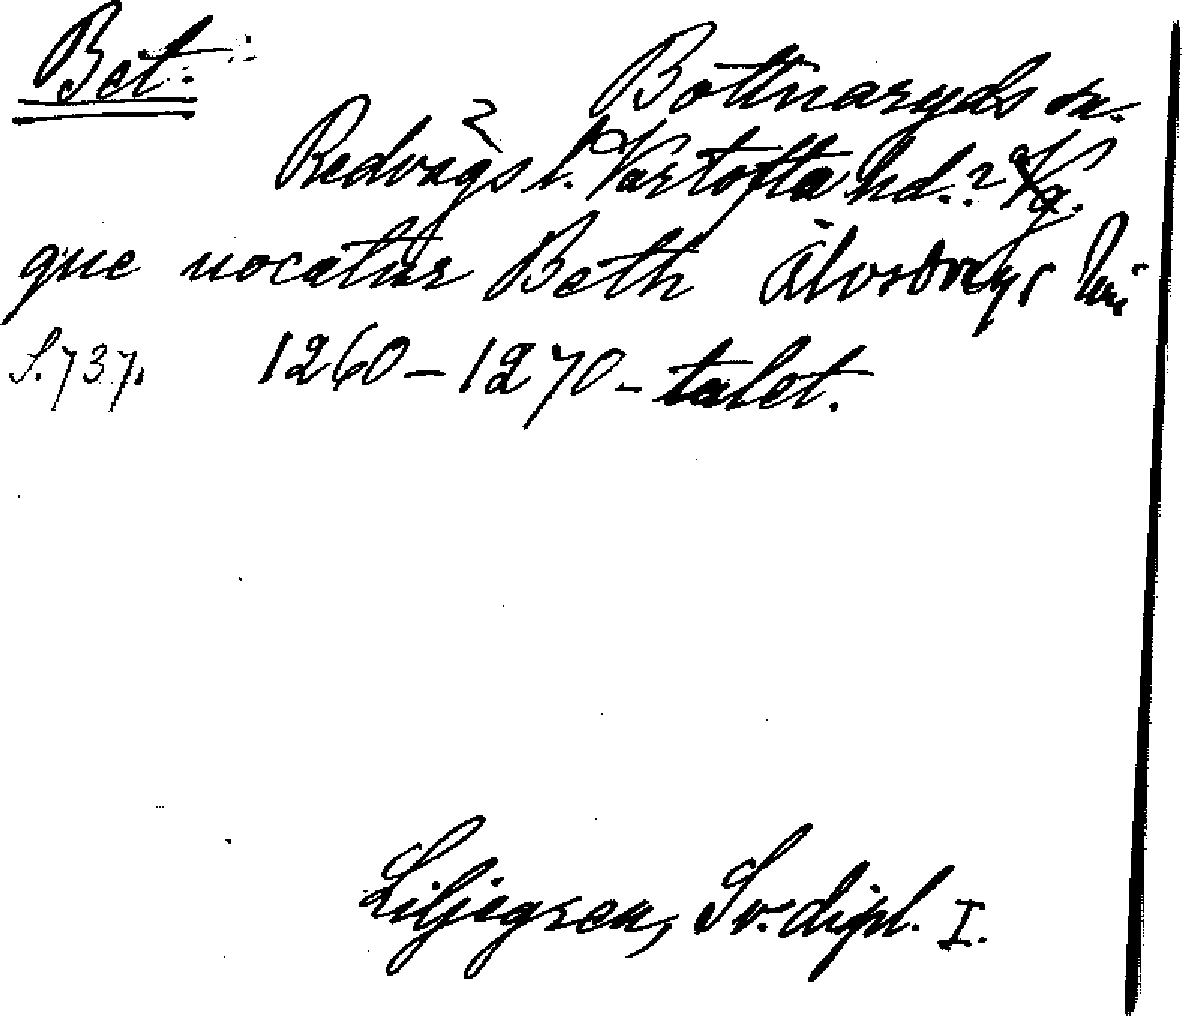 Bet.
Bottnaryds sn.
Redvägs l. Vartofta hd.? Vg.
que uocatur Beth Älvsborgs län
S. 737. 1260-1270-talet.
Liljegren, Sv. dipl. I.